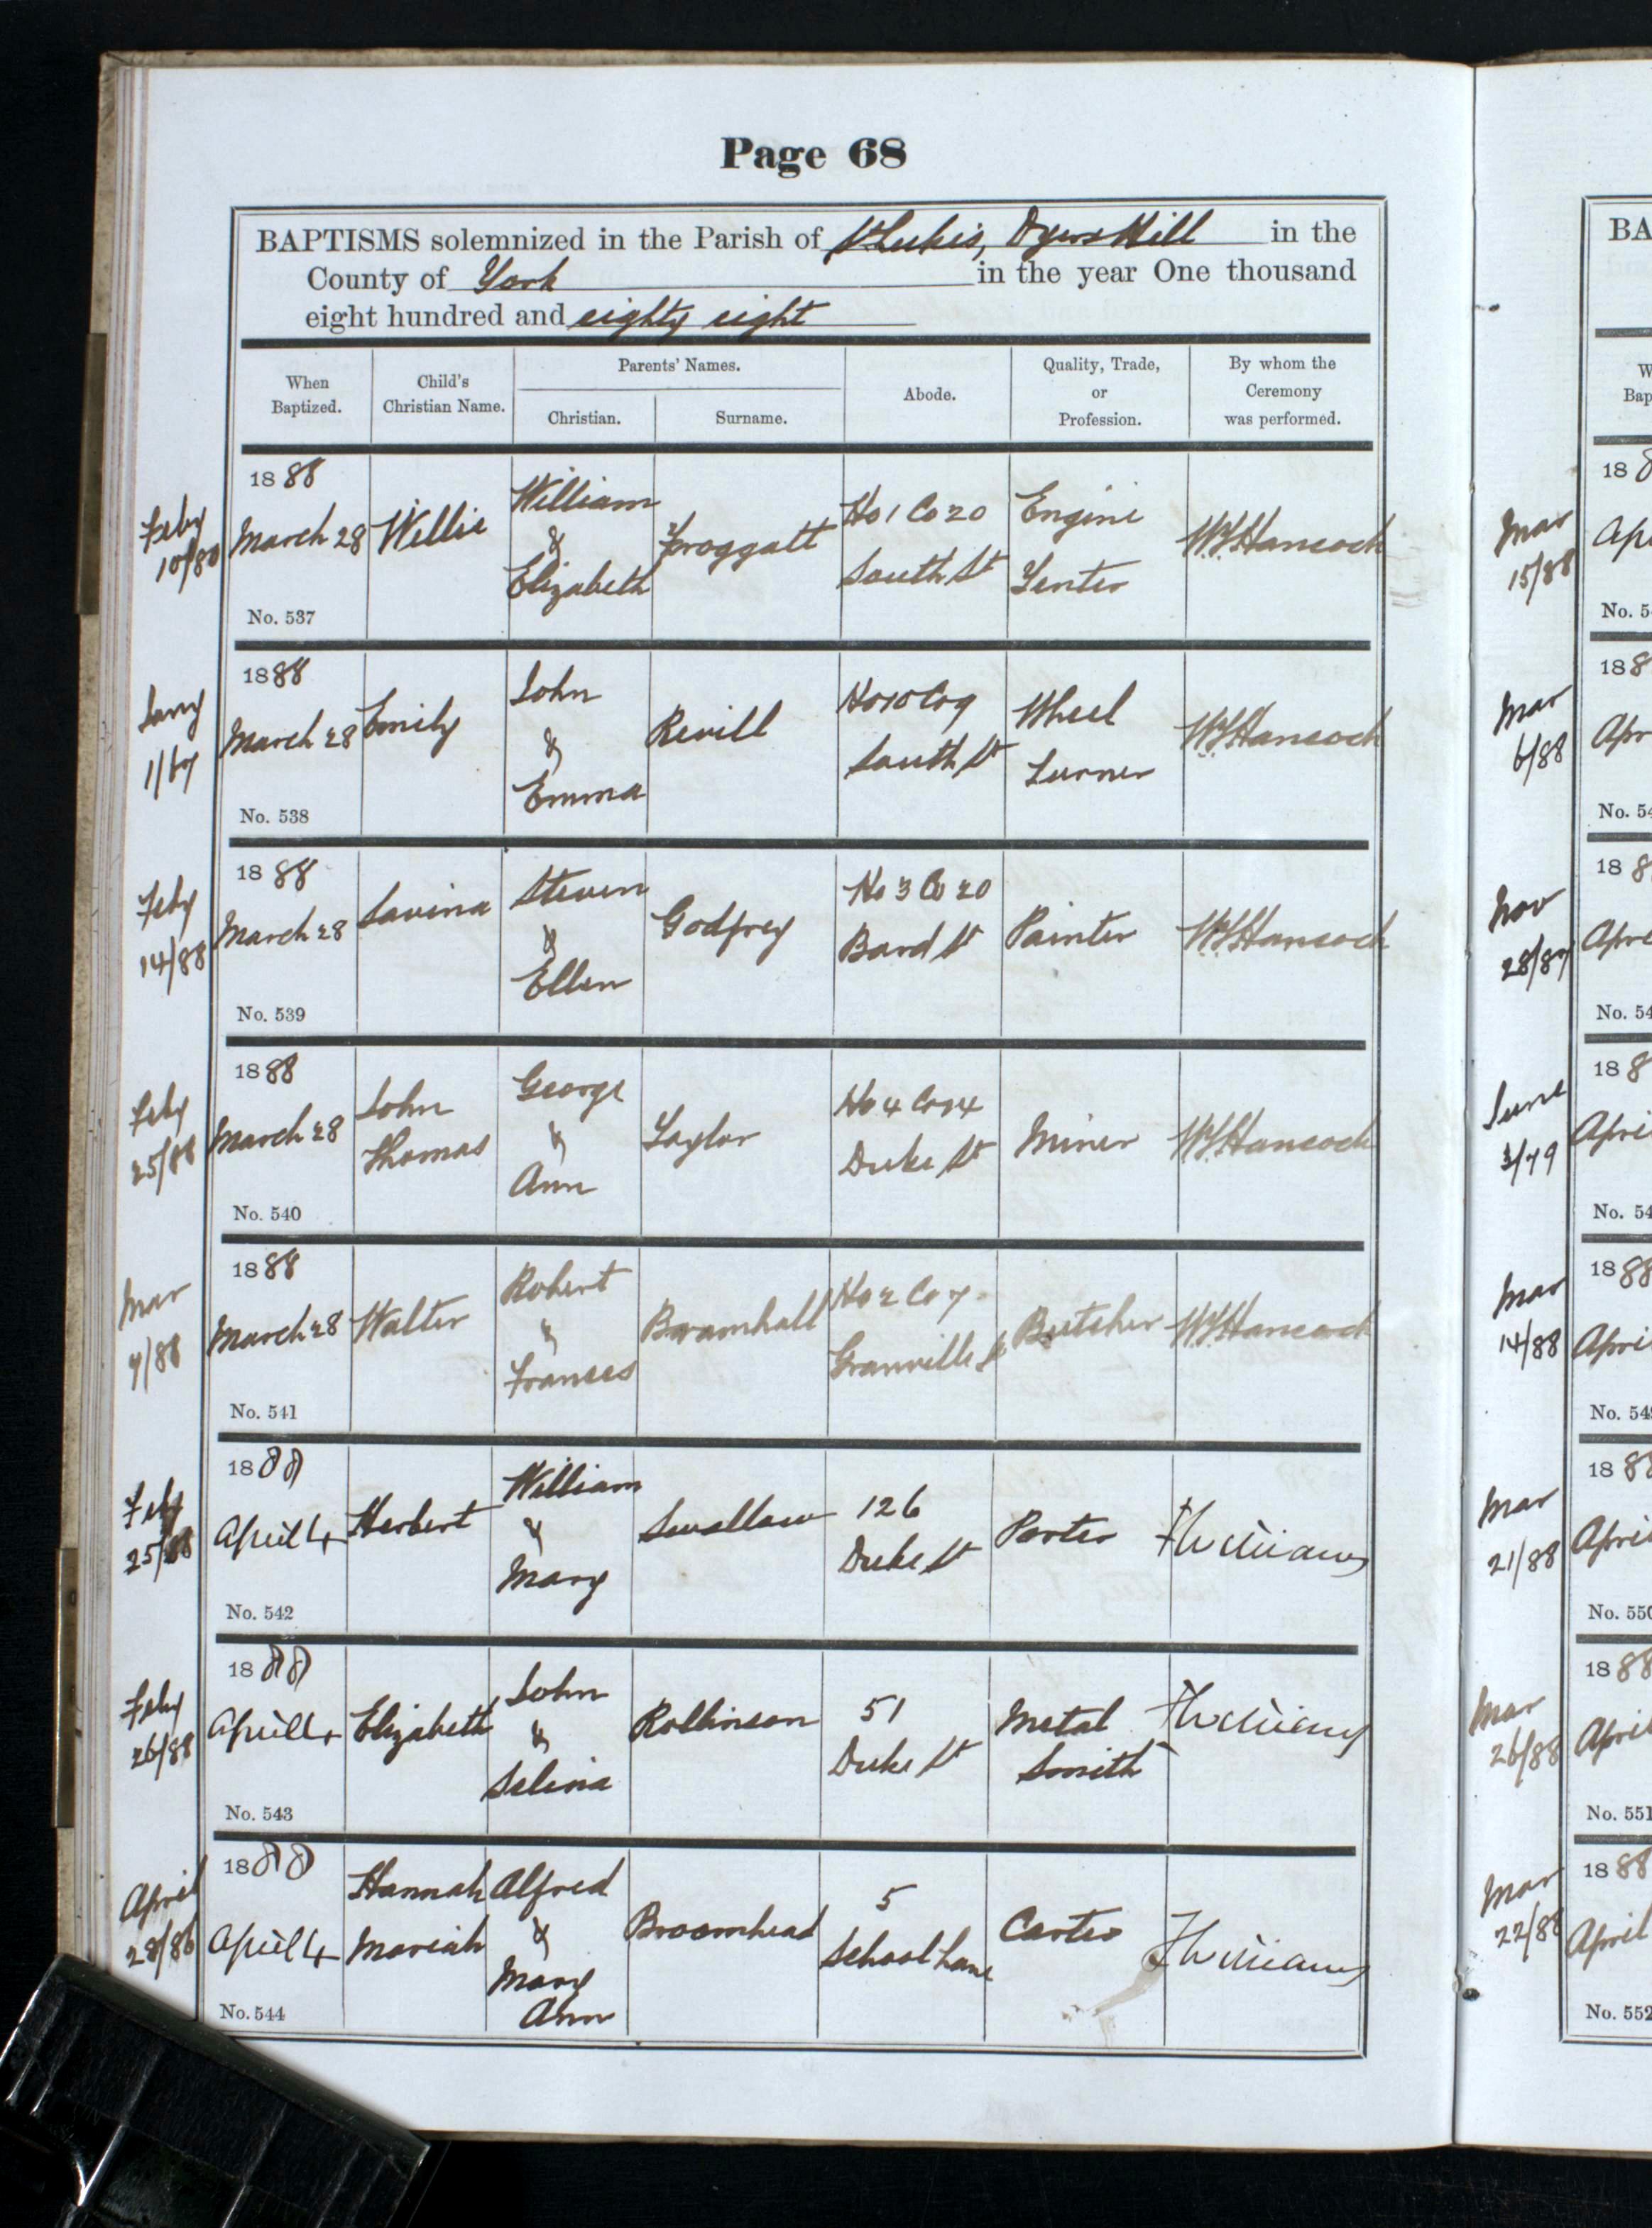 Page 68
BAPTISMS solemnized in the Parish of St Luke's, Dyers Hill in the
County of York in the year One thousand
eight hundred and eighty eight
When Baptized.
Child's Christian Name.
Parents' Names.
Christian.
Surname.
Abode.
Quality, Trade, or Profession.
By whom the Ceremony was performed.
Feby
10/88
1888
March 28
No. 537
Willie
William
&
Elizabeth
Froggatt
No 1 Co 20
South St
Engine
Tenter
W.Y. Hancock
Jany
1/67
1888
March 28
No. 538
Emily
John
&
Emma
Revill
No 10 Co 9
South St
Wheel
Turner
W.Y. Hancock
Feby
14/88
1888
March 28
No. 539
Lavina
Steven
&
Ellen
Godfrey
No 3 Co 20
Bard St
Painter
W.Y. Hancock
Feby
25/88
1888
March 28
No. 540
John
Thomas
George
&
Ann
Taylor
No 4 Co 14
Duke St
Miner
W.Y. Hancock
Mar
7/88
1888
March 28
No. 541
Walter
Robert
&
Frances
Bramhall
No 2 Co 7
Granville St
Butcher
W.Y. Hancock
Feby
25/88
1888
April 4
No. 542
Herbert
William
&
Mary
Swallow
126
Duke St
Porter
F Williams
Feby
26/88
1888
April 4
No. 543
Elizabeth
John
&
Selina
Rollinson
51
Duke St
Metal
Smith
F Williams
April
28/86
1888
April 4
No. 544
Hannah
Mariah
Alfred
&
Mary
Ann
Broomhead
5
School Lane
Carter
F Williams
BA
W
Bap
Mar
15/88
18 8
No. 5
Mar
6/88
18 8
Apr
No. 54
Nov
28/87
18 8
No. 54
June
3/79
18 8
Apri
No. 54
Mar
14/88
1888
April
No. 549
Mar
21/88
1888
April
No. 550
Mar
26/88
1888
April
No. 551
Mar
22/88
1888
April
No. 552